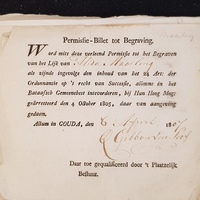 Permissie-Billet tot Begraving.
Word mits deze verleend Permissie tot het Begraven
van het Lijk van
als zijnde ingevolge den inhoud van het 24 Art: der
Ordonnantie op 't recht van Successie, alomme in het
Bataafsch Gemeenebest intevoorderen, bij Hun Hoog Mog:
geärresteerd den 4 October 1805, daar van aangeving
gedaan.
Actum in GOUDA, den 6 April 1807
Daar toe gequalificeerd door 't Plaatselijk
Bestuur.